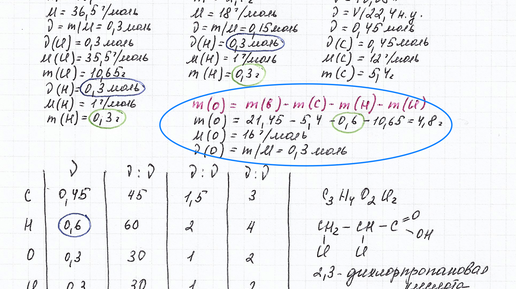 M = 36,5 г/моль
ν(Cl) = 0,3 моль
M(Cl) = 35,5 г/моль
m(Cl) = 10,65 г
ν(H) = 0,3 моль
M(H) = 1 г/моль
m(H) = 0,3 г
M = 18 г/моль
ν = m/M = 0,15 моль
ν(H) = 0,3 моль
M(H) = 1 г/моль
m(H) = 0,3 г
ν = V/22,4 н.у.
ν = 0,45 моль
ν(C) = 0,45 моль
M(C) = 12 г/моль
m(C) = 5,4 г
m(O) = m(в) - m(C) - m(H) - m(Cl)
m(O) = 21,45 - 5,4 - 0,6 - 10,65 = 4,8 г
M(O) = 16 г/моль
ν(O) = m/M = 0,3 моль
ν ν:ν ν:ν ν:ν
C 0,45 45 1,5 3
H 0,6 60 2 4
O 0,3 30 1 2
Cl 0,3 30 1 2
C3 H4 O2 Cl2
CH2 - CH - C O
OH
Cl Cl
2,3-дихлорпропановая
кислота